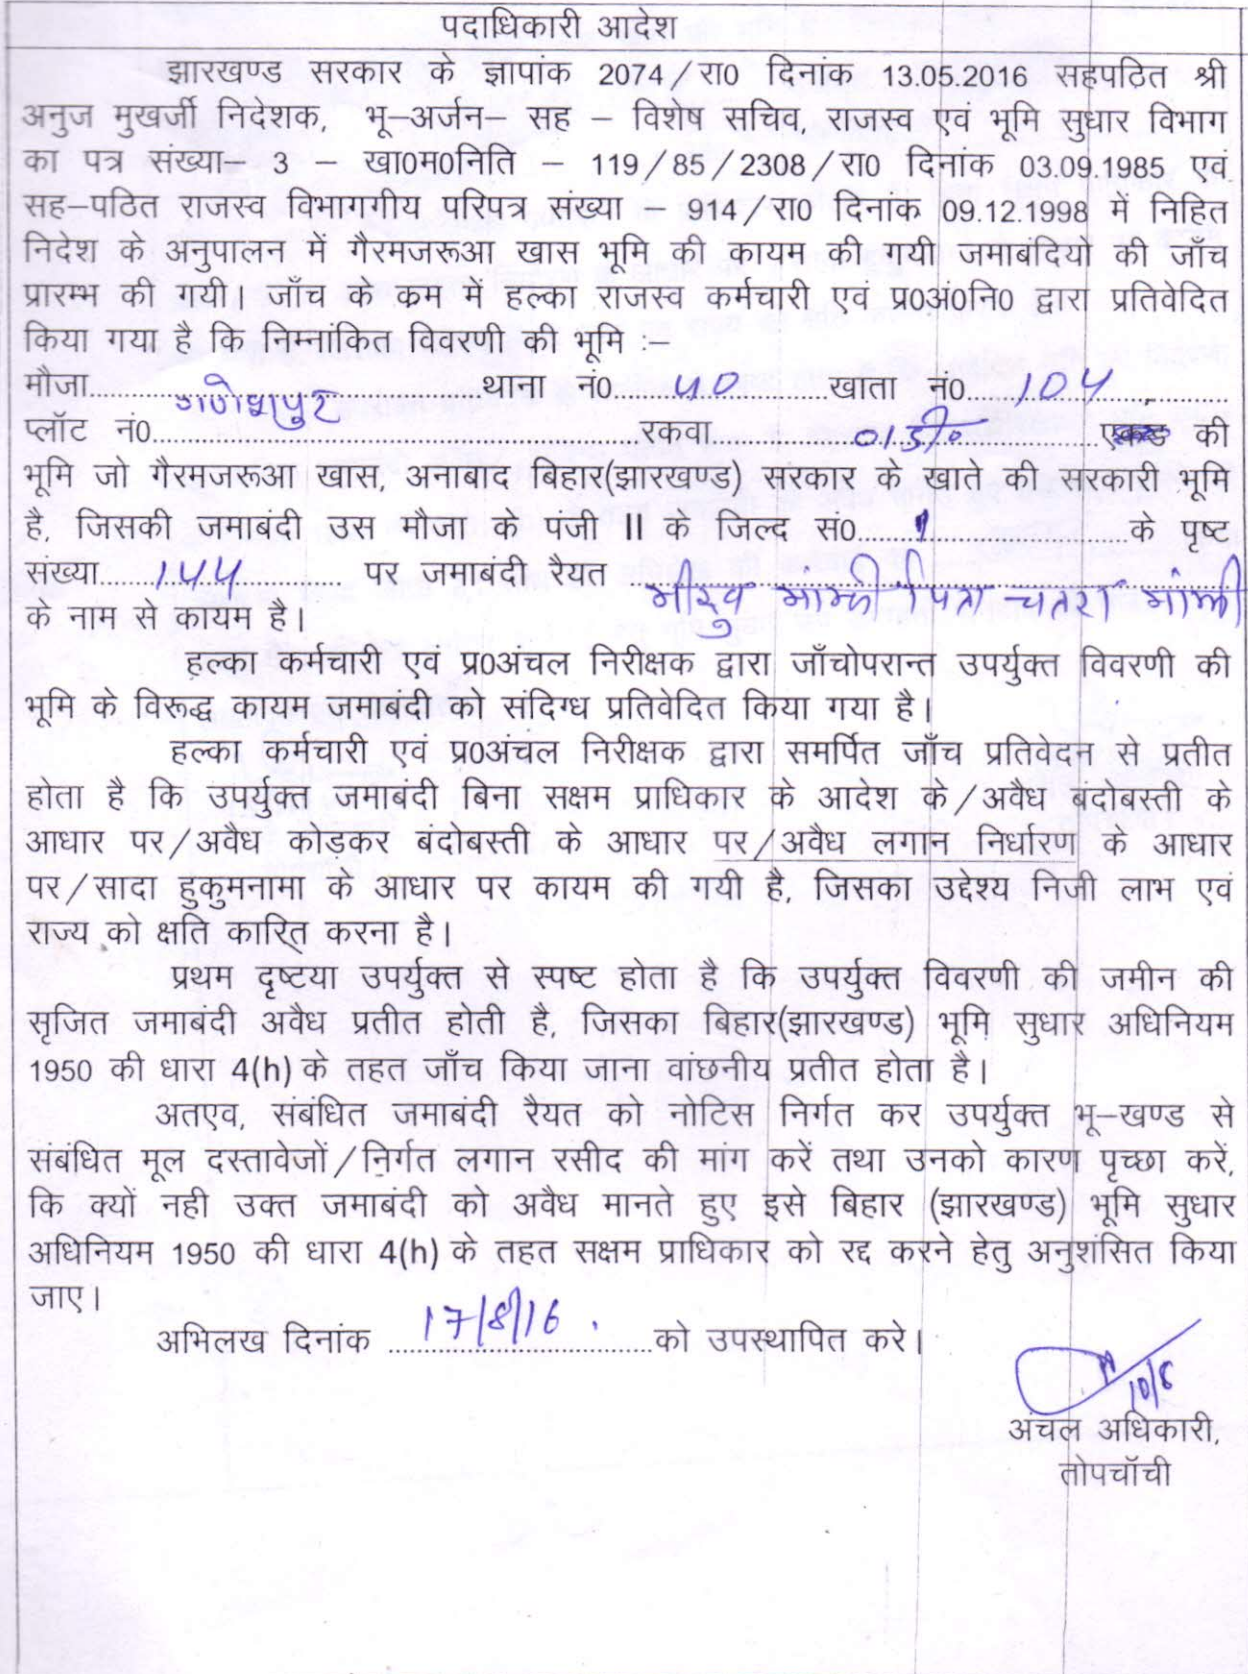 पदाधिकारी आदेश
झारखण्ड सरकार के ज्ञापांक 2074/रा0 दिनांक 13.05.2016 सहपठित श्री
अनुज मुखर्जी निदेशक, भू–अर्जन– सह – विशेष सचिव, राजस्व एवं भूमि सुधार विभाग
का पत्र संख्या– 3 – खा0म0निति – 119/85/2308/रा0 दिनांक 03.09.1985 एवं
सह–पठित राजस्व विभागगीय परिपत्र संख्या – 914/रा0 दिनांक 09.12.1998 में निहित
निदेश के अनुपालन में गैरमजरूआ खास भूमि की कायम की गयी जमाबंदियों की जाँच
प्रारम्भ की गयी। जाँच के क्रम में हल्का राजस्व कर्मचारी एवं प्र0अं0नि0 द्वारा प्रतिवेदित
किया गया है कि निम्नांकित विवरणी की भूमि :–
मौजा गणेशपुर थाना नं0 40 खाता नं0 104
प्लॉट नं0 रकवा 01डी0 एकड की
भूमि जो गैरमजरूआ खास, अनाबाद बिहार(झारखण्ड) सरकार के खाते की सरकारी भूमि
है, जिसकी जमाबंदी उस मौजा के पंजी II के जिल्द सं0 1 के पृष्ट
संख्या 144 पर जमाबंदी रैयत मांझी पिता चतरा मांझी
के नाम से कायम है।
हल्का कर्मचारी एवं प्र0अंचल निरीक्षक द्वारा जाँचोपरान्त उपर्युक्त विवरणी की
भूमि के विरूद्ध कायम जमाबंदी को संदिग्ध प्रतिवेदित किया गया है।
हल्का कर्मचारी एवं प्र0अंचल निरीक्षक द्वारा समर्पित जाँच प्रतिवेदन से प्रतीत
होता है कि उपर्युक्त जमाबंदी बिना सक्षम प्राधिकार के आदेश के/अवैध बंदोबस्ती के
आधार पर/अवैध कोड़कर बंदोबस्ती के आधार पर/अवैध लगान निर्धारण के आधार
पर/सादा हुकुमनामा के आधार पर कायम की गयी है, जिसका उद्देश्य निजी लाभ एवं
राज्य को क्षति कारित करना है।
प्रथम दृष्टया उपर्युक्त से स्पष्ट होता है कि उपर्युक्त विवरणी की जमीन की
सृजित जमाबंदी अवैध प्रतीत होती है, जिसका बिहार(झारखण्ड) भूमि सुधार अधिनियम
1950 की धारा 4(h) के तहत जाँच किया जाना वांछनीय प्रतीत होता है।
अतएव, संबंधित जमाबंदी रैयत को नोटिस निर्गत कर उपर्युक्त भू–खण्ड से
संबंधित मूल दस्तावेजों/निर्गत लगान रसीद की मांग करें तथा उनको कारण पृच्छा करें,
कि क्यों नही उक्त जमाबंदी को अवैध मानते हुए इसे बिहार (झारखण्ड) भूमि सुधार
अधिनियम 1950 की धारा 4(h) के तहत सक्षम प्राधिकार को रद्द करने हेतु अनुशंसित किया
जाए।
अभिलख दिनांक 17/8/16 को उपस्थापित करे।
10/8
अंचल अधिकारी,
तोपचाँची